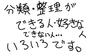 分類・整理が
できる人・好きな
できない人…人
いろいろです。